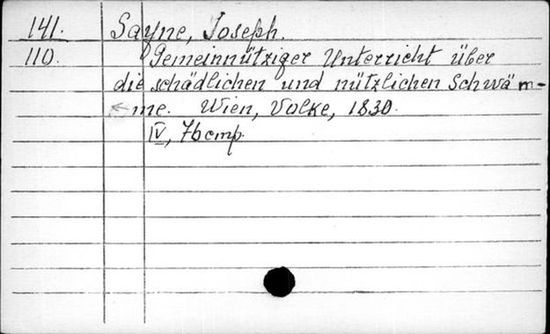 141. Sayne, Joseph.
110. Gemeinnütziger Unterricht über
die schädlichen und nützlichen Schwäm-
me. Wien, Volke, 1830.
IV, 76 cmp.